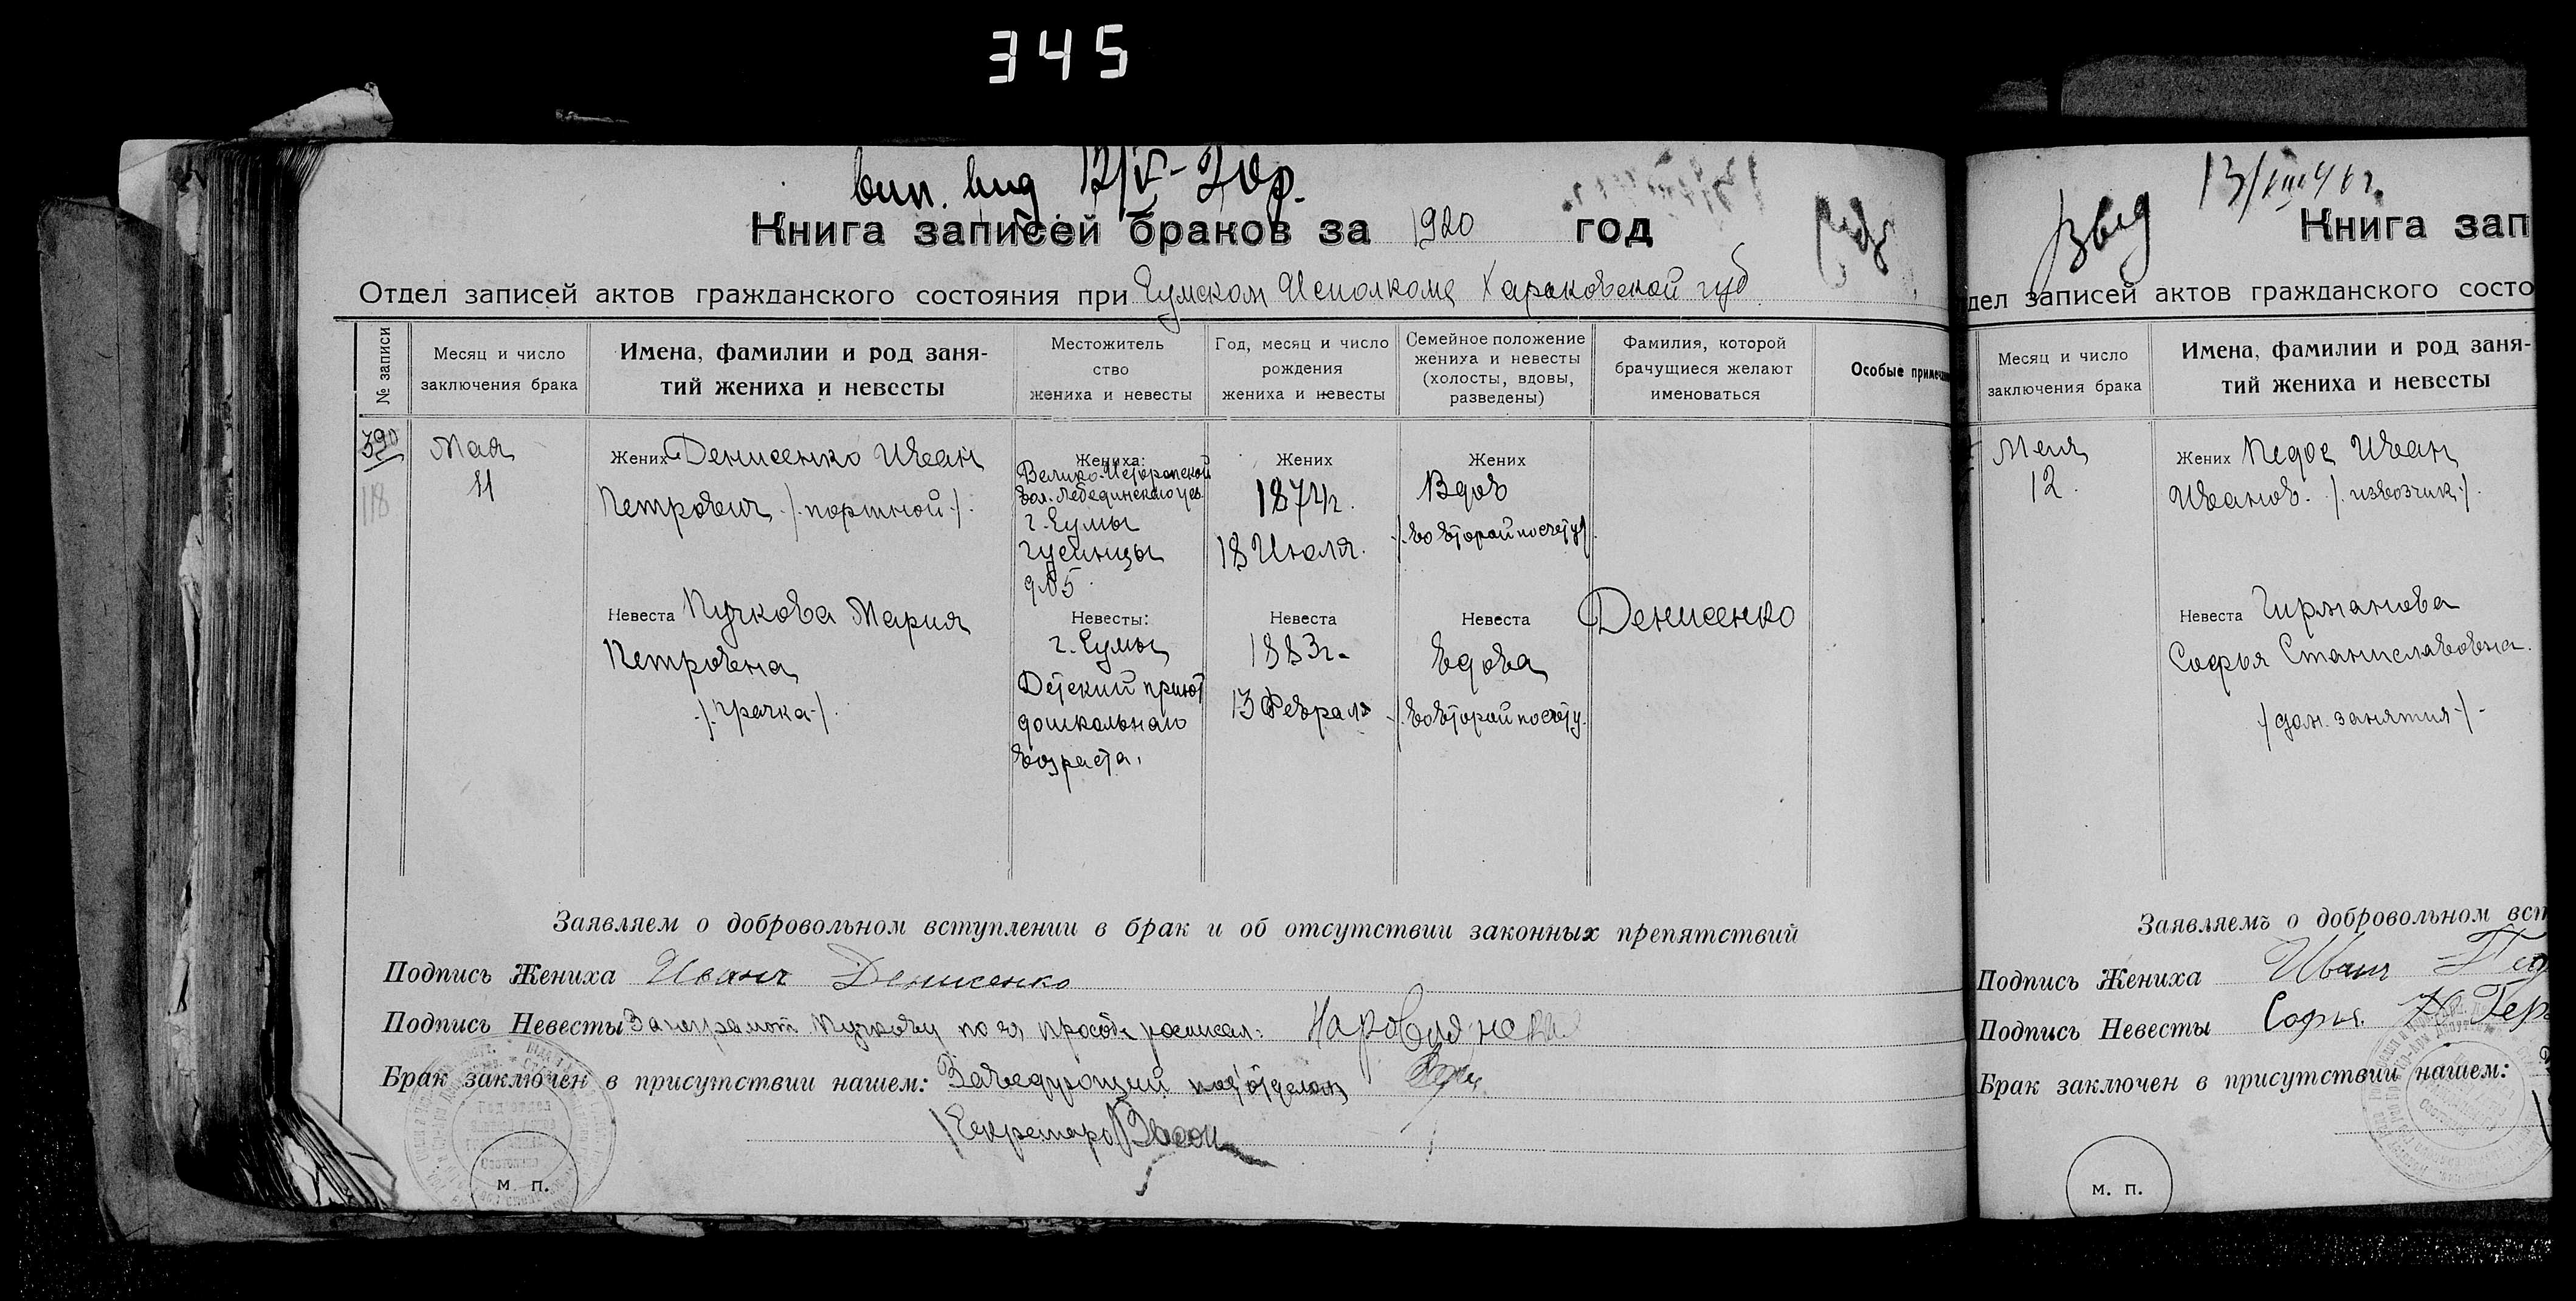 345
вип. вид 12/V-20р.
Книга записей браков за 1920 год
Отдел записей актов гражданского состояния при Сумском Исполкоме Харьковской губ.
№ записи
Месяц и число заключения брака
Имена, фамилии и род занятий жениха и невесты
Местожительство жениха и невесты
Год, месяц и число рождения жениха и невесты
Семейное положение жениха и невесты (холосты, вдовы, разведены)
Фамилия, которой брачущиеся желают именоваться
Особые примечан
390
118
Мая
11
Жених Денисенко Иван
Петрович /портной/.
Жениха:
Велико-Исторопской
вол. Лебединского уез.
г. Сумы
Гусинцы
д №5
Жених
1874г.
18 Июля.
Жених
Вдов
/во второй по счету/.
Невеста Пучкова Мария
Петровна
/прачка/.
Невесты:
г. Сумы
Детский приют
дошкольнаго
возраста.
Невеста
1883г.
13 Февраля
Невеста
Вдова
/во второй по счету.
Денисенко
Заявляем о добровольном вступлении в брак и об отсутствии законных препятствий
Подпись Жениха Иван Денисенко
Подпись Невесты За неграмот Пучкову по ея просьбе росписал:
Брак заключен в присутствии нашем: Заведующий подотделом
/Секретарь/
м. п.
13/VIII 46 г.
выд
Книга зап
дел записей актов гражданского состо
Месяц и число заключения брака
Имена, фамилии и род занятий жениха и невесты
Мая
12.
Жених Педос Иван
Иванов. /извозчик/.
Невеста Гирманова
Софья Станиславовна.
/дом. занятия/-
Заявляемъ о добровольном вст
Подпись Жениха Иван Пед
Подпись Невесты Софья
Брак заключен в присутствии нашем:
м. п.